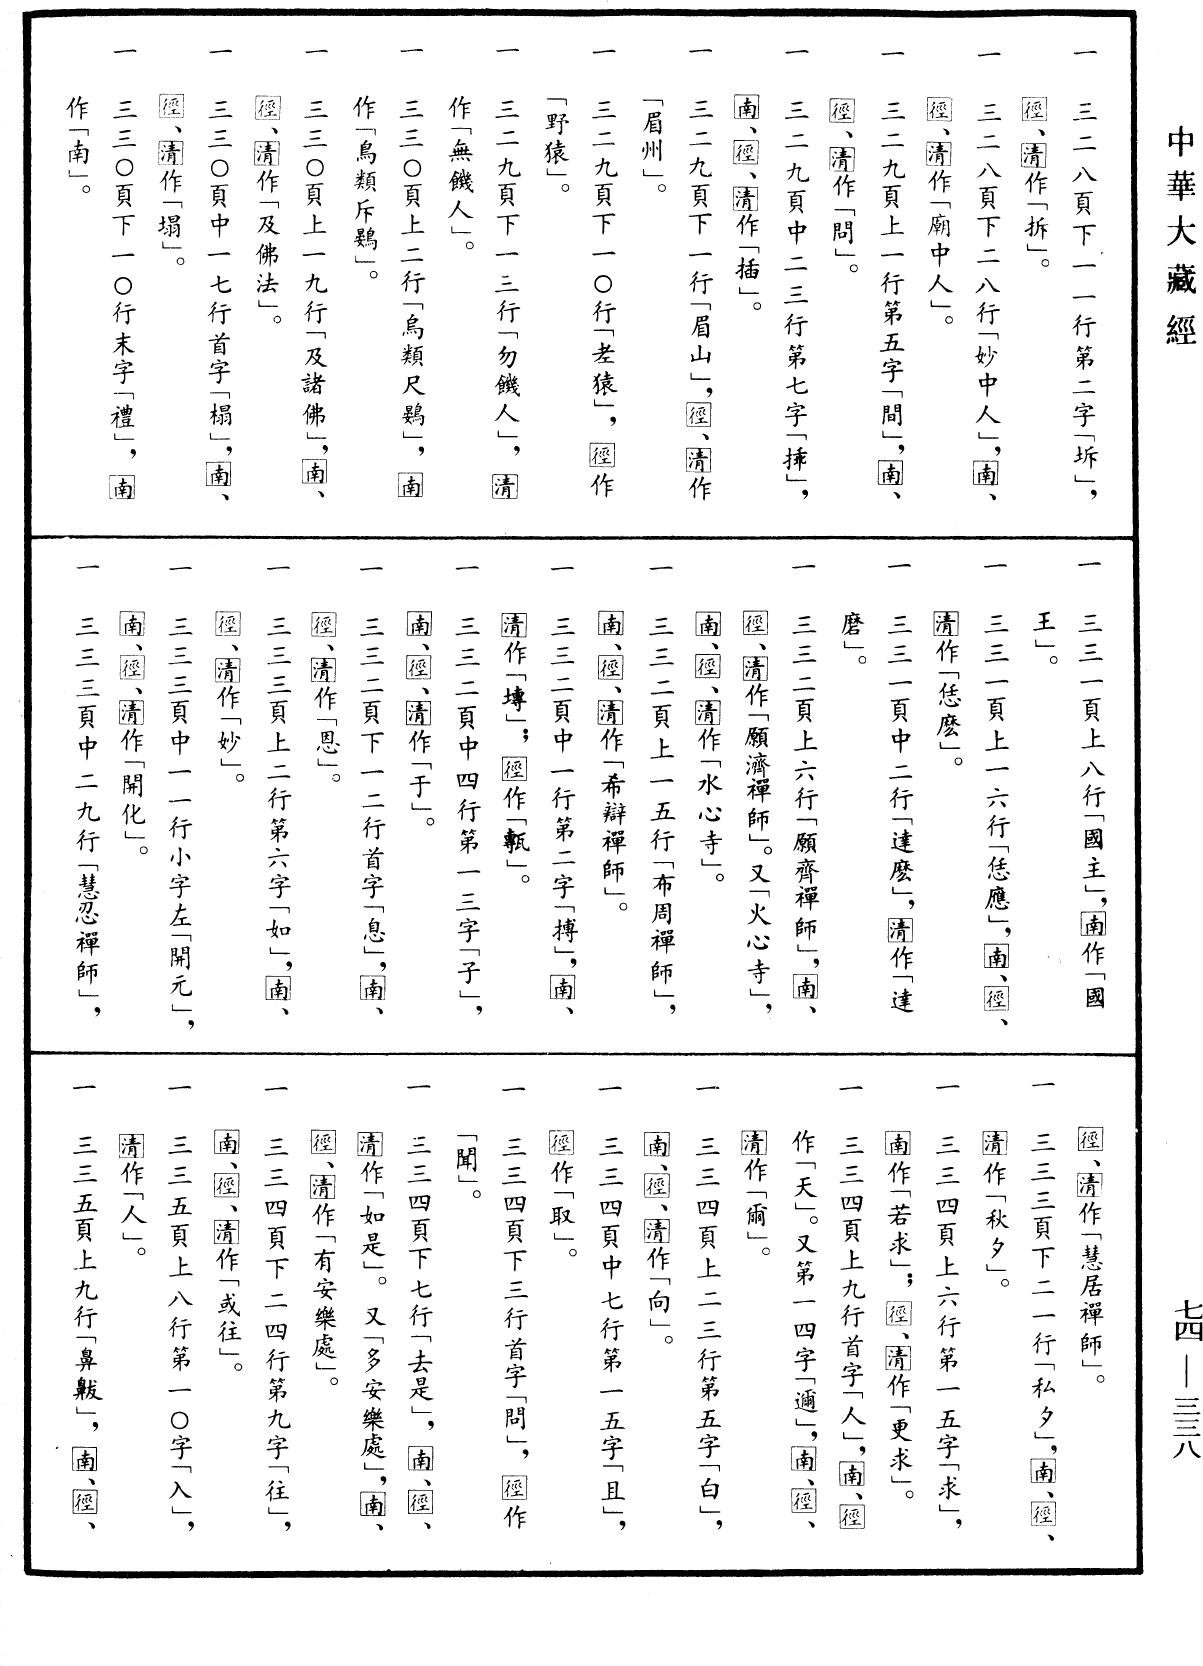 中華大藏經
一　三二八頁下一一行第二字「坼」，
徑、清作「拆」。
一　三二八頁下二八行「妙中人」，南、
徑、清作「廟中人」。
一　三二九頁上一行第五字「間」，南、
徑、清作「問」。
一　三二九頁中二三行第七字「揷」，
南、徑、清作「插」。
一　三二九頁下一行「眉山」，徑、清作
「眉州」。
一　三二九頁下一〇行「老猿」，徑作
「野猿」。
一　三二九頁下一三行「勿饑人」，清
作「無饑人」。
一　三三〇頁上二行「烏類尺鷃」，南
作「鳥類斥鷃」。
一　三三〇頁上一九行「及諸佛」，南、
徑、清作「及佛法」。
一　三三〇頁中一七行首字「榻」，南、
徑、清作「塌」。
一　三三〇頁下一〇行末字「禮」，南
作「南」。
一　三三一頁上八行「國主」，南作「國
王」。
一　三三一頁上一六行「恁應」，南、徑、
清作「恁麽」。
一　三三一頁中二行「達麽」，清作「達
磨」。
一　三三二頁上六行「願齊禪師」，南、
徑、清作「願濟禪師」。又「火心寺」，
南、徑、清作「水心寺」。
一　三三二頁上一五行「布周禪師」，
南、徑、清作「希辯禪師」。
一　三三二頁中一行第二字「摶」，南、
清作「塼」；徑作「甎」。
一　三三二頁中四行第一三字「子」，
南、徑、清作「于」。
一　三三二頁下一二行首字「息」，南、
徑、清作「恩」。
一　三三三頁上二行第六字「如」，南、
徑、清作「妙」。
一　三三三頁中一一行小字左「開元」，
南、徑、清作「開化」。
一　三三三頁中二九行「慧忍禪師」，
徑、清作「慧居禪師」。
一　三三三頁下二一行「私夕」，南、徑、
清作「秋夕」。
一　三三四頁上六行第一五字「求」，
南作「若求」；徑、清作「更求」。
一　三三四頁上九行首字「人」，南、徑
作「天」。又第一四字「邇」，南、徑、
清作「爾」。
一　三三四頁上二三行第五字「白」，
南、徑、清作「向」。
一　三三四頁中七行第一五字「且」，
徑作「取」。
一　三三四頁下三行首字「問」，徑作
「聞」。
一　三三四頁下七行「去是」，南、徑、
清作「如是」。又「多安樂處」，南、
徑、清作「有安樂處」。
一　三三四頁下二四行第九字「往」，
南、徑、清作「或往」。
一　三三五頁上八行第一〇字「入」，
清作「人」。
一　三三五頁上九行「鼻㿺」，南、徑、
七四—三三八